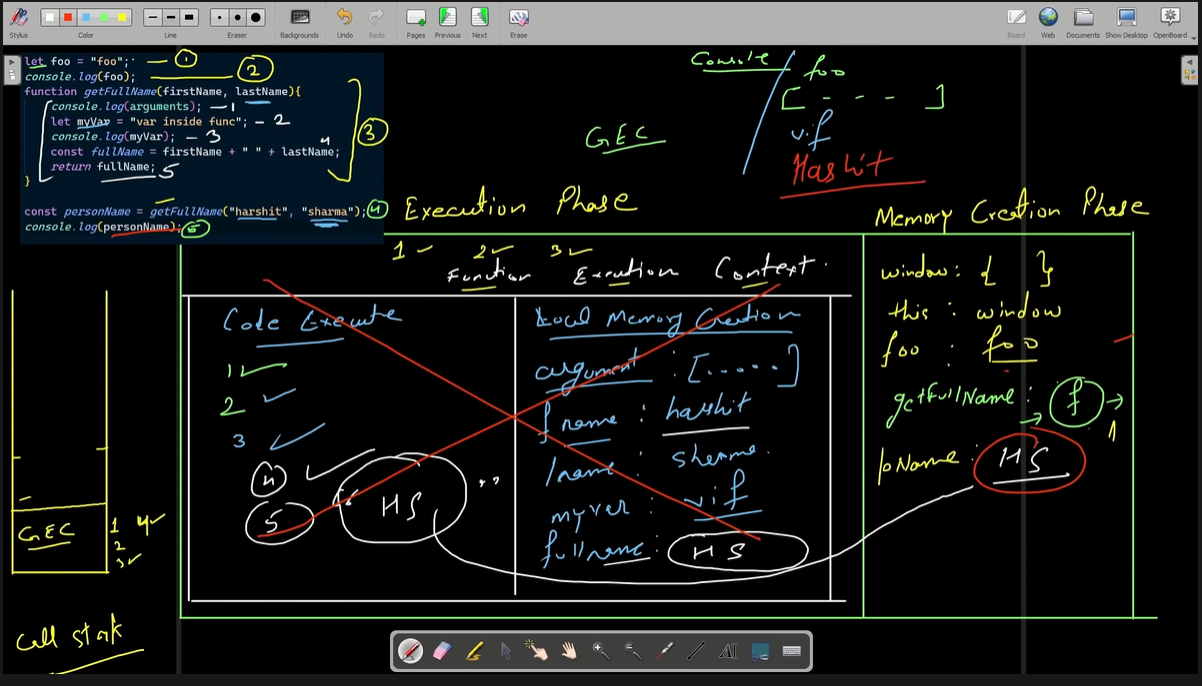 Stylus
Color
Line
Eraser
Backgrounds
Undo
Redo
Pages
Previous
Next
Erase
Board
Web
Documents
Show Desktop
OpenBoard
let foo = "foo"; — 1
console.log(foo); 2
function getFullName(firstName, lastName){
console.log(arguments); — 1
let myVar = "var inside func"; — 2
console.log(myVar); — 3
const fullName = firstName + " " + lastName; 4
return fullName; 5
}
3
const personName = getFullName("harshit", "sharma"); 4
console.log(personName); 5
Console
foo
[ - - - ]
v.if
Hashit
GEC
Execution Phase
Memory Creation Phase
1 ✓ 2 ✓ 3 ✓
Function Execution Context.
Code Execute
1 ✓
2 ✓
3 ✓
4 ✓
5 " HS "
Local Memory Creation
argument : [.....]
fname : harshit
lname : sherma.
myver : vif
fullname : HS
window : { }
this : window
foo : foo
getfullName : f
1
pName : HS
GEC
1 4 ✓
2
3 ✓
Call stak
AI